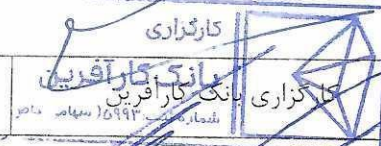 کارگزاری
بانک کارآفرین
کارگزاری بانک کارآفرین
شماره ثبت: ۱۵۹۹۳ (سهامی خاص)